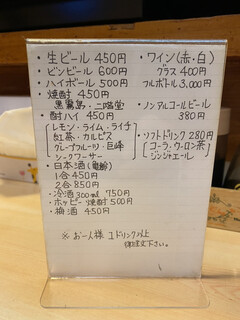 ・生ビール 450円
・ビンビール 600円
・ハイボール 500円
・焼酎 450円
黒霧島・二階堂
・酎ハイ 450円
レモン・ライム・ライチ
紅茶・カルピス
グレープフルーツ・巨峰
シークワーサー
・日本酒(亀齢)
1合 450円
2合 850円
・冷酒 300ml 750円
・ホッピー焼酎 500円
・梅酒 450円
・ワイン(赤・白)
グラス 400円
フルボトル 3,000円
・ノンアルコールビール
380円
・ソフトドリンク 280円
コーラ・ウーロン茶
ジンジャエール
※ お一人様 1ドリンク以上
御注文下さい。